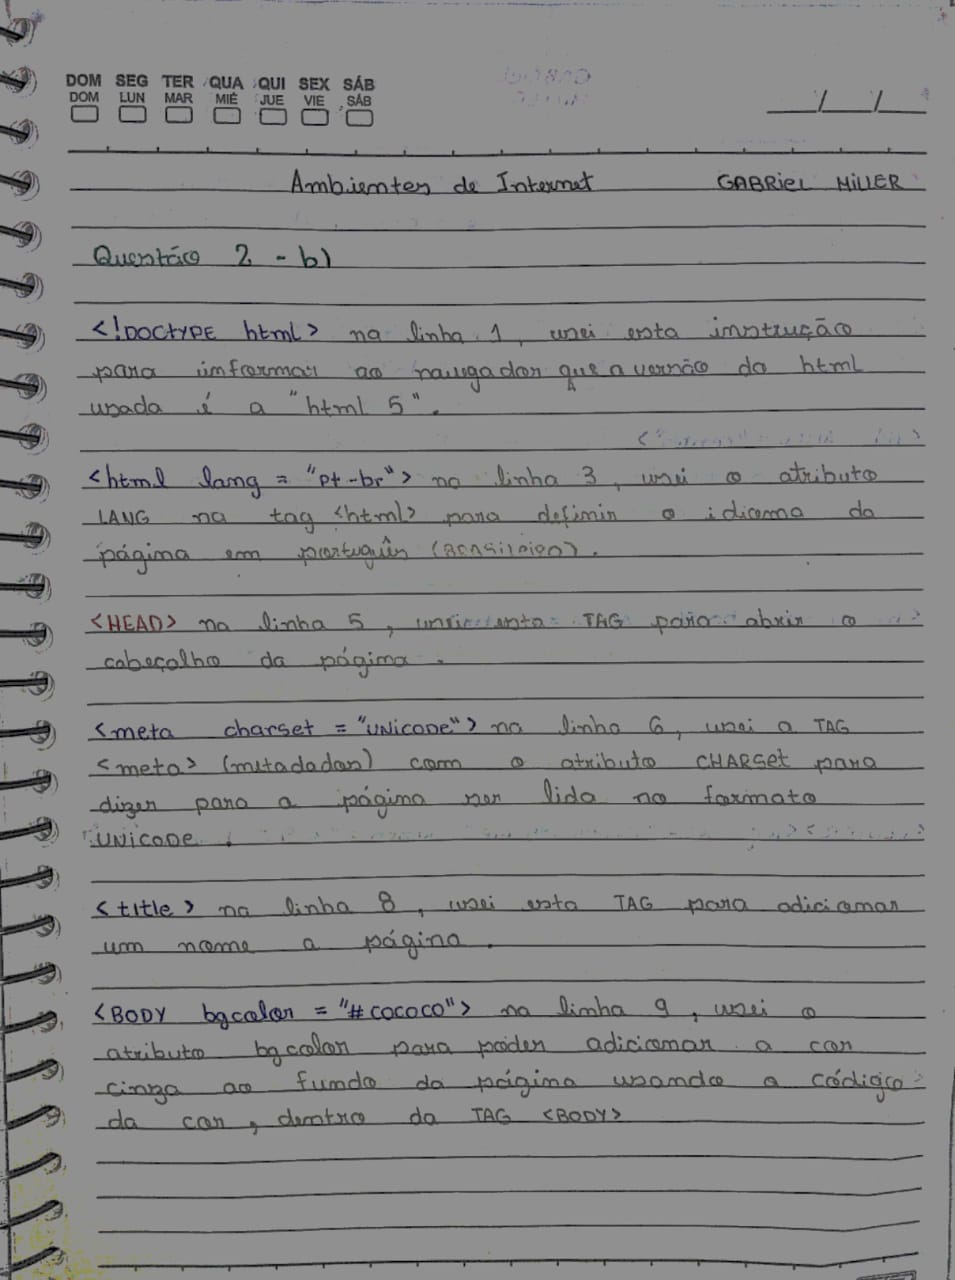 DOM SEG TER QUA QUI SEX SÁB
DOM LUN MAR MIÉ JUE VIE SÁB
Ambientes de Internet GABRIEL MILLER
Questão 2 - b)
<!DOCTYPE html> na linha 1, usei esta instrução
para informar ao navegador que a versão do html
usada é a "html 5".
<html lang = "pt-br"> na linha 3, usei o atributo
LANG na tag <html> para definir o idioma da
página em português (BRASILEIRO).
<HEAD> na linha 5, inseri esta TAG para abrir o
cabeçalho da página.
<meta charset = "UNICODE"> na linha 6, usei a TAG
<meta> (metadados) com o atributo CHARSET para
dizer para a página ser lida no formato
UNICODE.
<title> na linha 8, usei esta TAG para adicionar
um nome a página.
<BODY bgcolor = "#C0C0C0"> na linha 9, usei o
atributo bgcolor para poder adicionar a cor
cinza ao fundo da página usando o código
da cor, dentro da TAG <BODY>